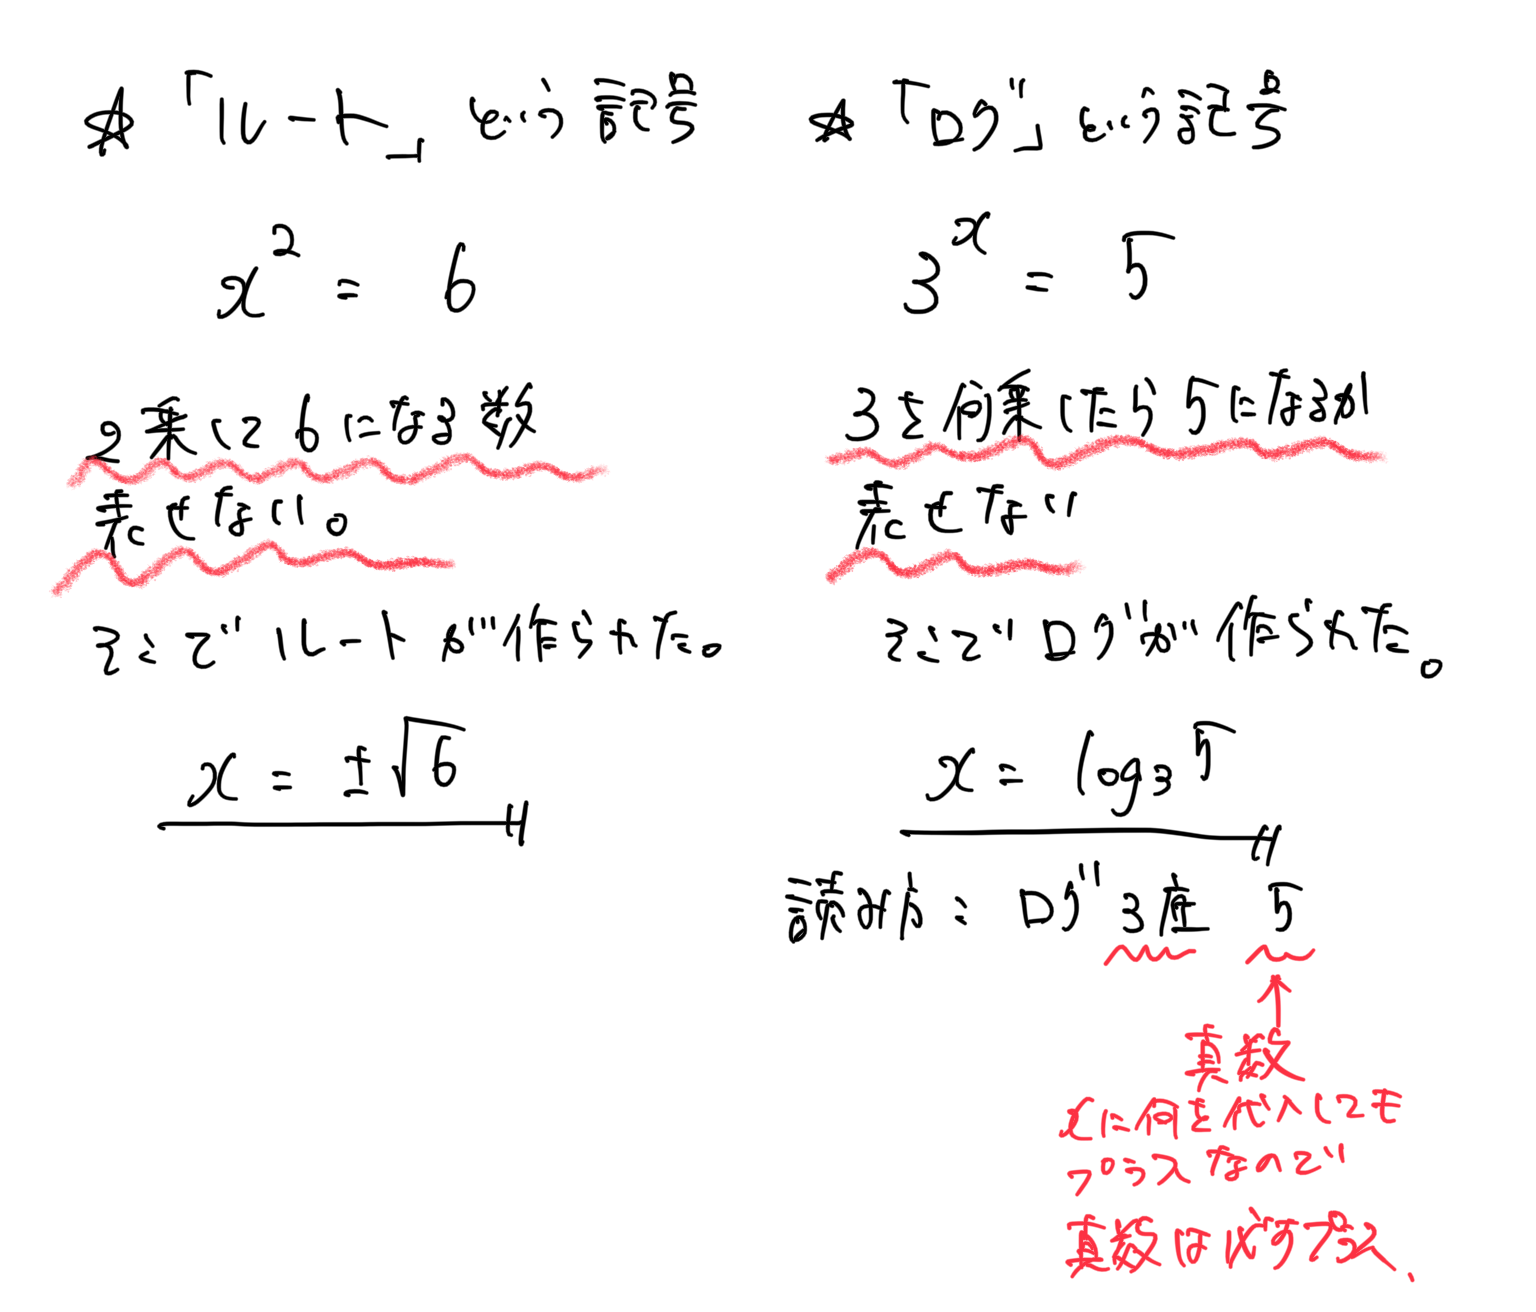 ☆「ルート」という記号
x² = 6
2乗して6になる数
表せない。
そこでルートが作られた。
x = ±√6
☆「ログ」という記号
3ˣ = 5
3を何乗したら5になるか
表せない
そこでログが作られた。
x = log₃5
読み方：ログ3底 5
↑
真数
xに何を代入しても
プラスなので
真数は必ずプラス、